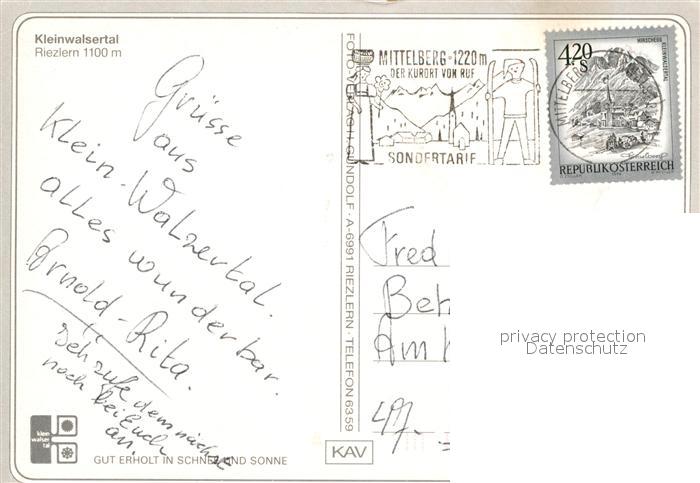 Kleinwalsertal
Riezlern 1100 m
Grüsse
aus
Klein-Walsertal.
alles wunderbar.
Arnold-Rita.
Ich rufe demnächst
noch bei Euch
an.
klein
walser
tal
GUT ERHOLT IN SCHNEE UND SONNE
FOTO-VERLAG H. GUNDOLF · A-6991 RIEZLERN · TELEFON 6359
KAV
MITTELBERG·1220m
DER KURORT VON RUF
SONDERTARIF
MITTELBERG
4.20
S
HIRSCHEGG
KLEINWALSERTAL
REPUBLIK ÖSTERREICH
Fred
Beh
Am
497.
privacy protection
Datenschutz